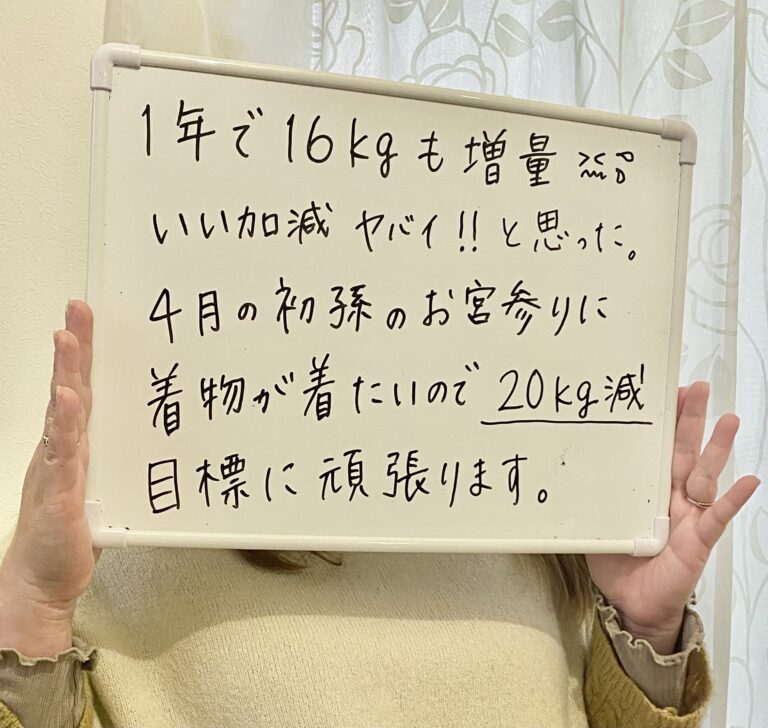 1年で16kgも増量
いい加減ヤバイ!!と思った。
4月の初孫のお宮参りに
着物が着たいので20kg減
目標に頑張ります。